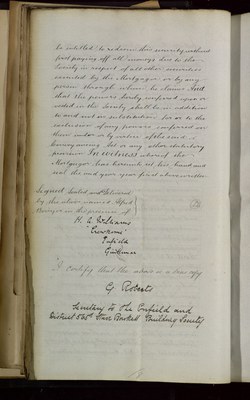 be entitled to redeem this security without
first paying off all moneys due to the
Society in respect of all other securities
executed by the Mortgagor or by any
person through whom he claims And
that the powers hereby conferred upon or
vested in the Society shall be in addition
to and not in substitution for or to the
exclusion of any powers conferred on
them under or by virtue of the said
Conveyancing Act or any other statutory
provision In witness whereof the
Mortgagor has hereunto set his hand and
seal the day and year first above written
Signed Sealed and Delivered
by the above named Alfred
in the presence of
H. G. Williams
Enfield
Gentleman
I certify that the above is a true copy
G Roberts
Secretary to the Enfield and
District 565th Starr Bowkett Building Society